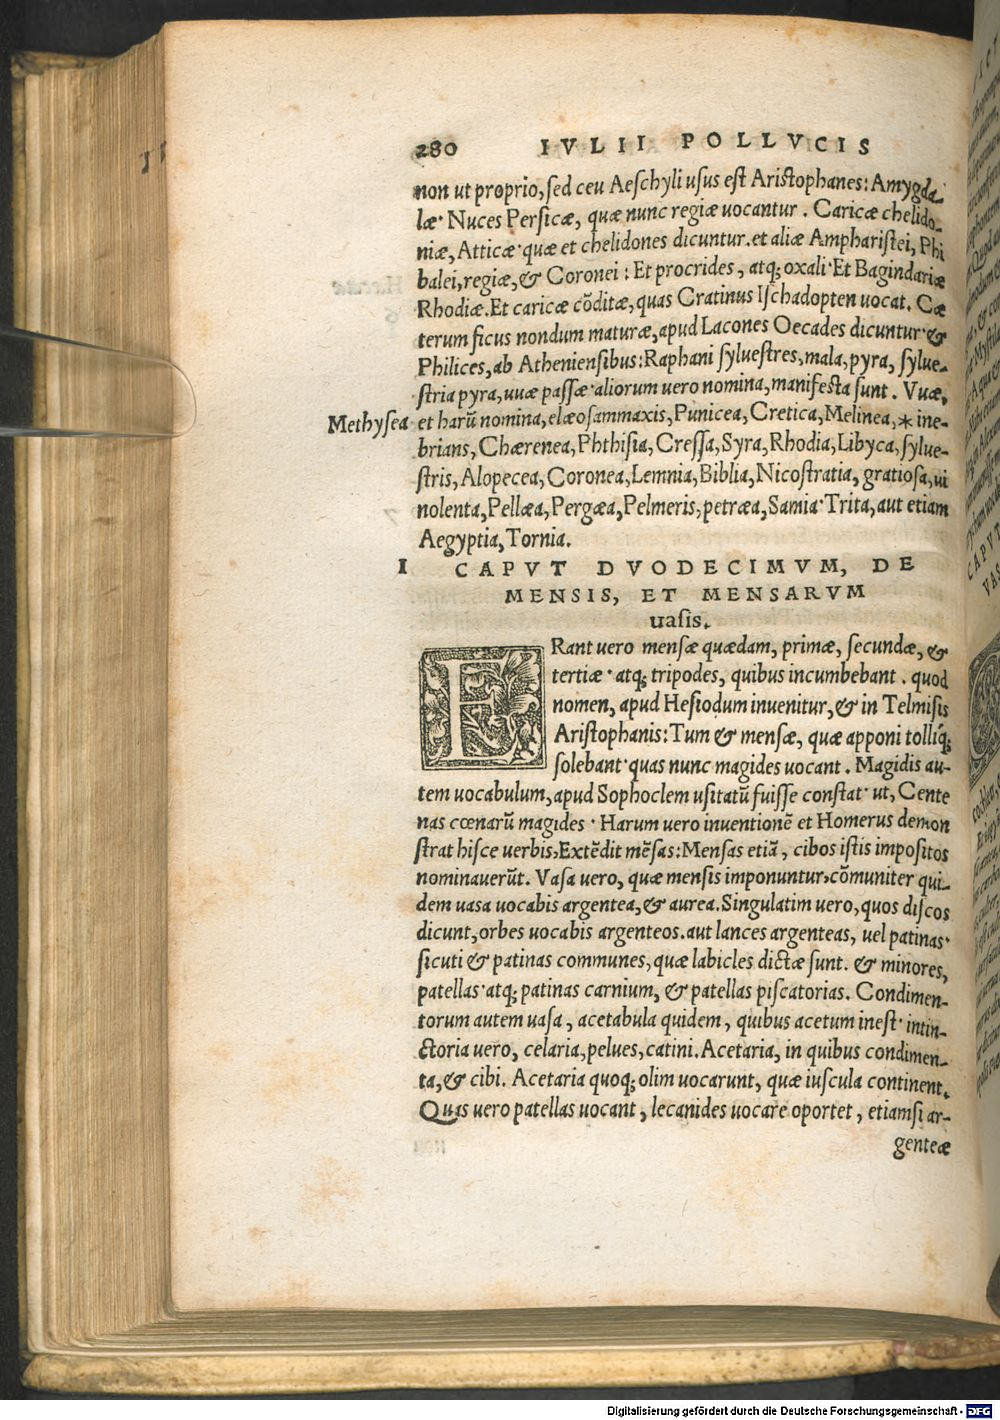 280 IVLII POLLVCIS
non ut proprio, sed ceu Aeschyli usus est Aristophanes: Amygda-
læ· Nuces Persicæ, quæ nunc regiæ uocantur. Caricæ chelido-
niæ, Atticæ· quæ et chelidones dicuntur. et aliæ Ampharistei, Phi
balei, regiæ, & Coronei: Et procrides, atq; oxali· Et Bagindariæ
Rhodiæ. Et caricæ cõditæ, quas Cratinus Ischadopten uocat. Cæ
terum ficus nondum maturæ, apud Lacones Oecades dicuntur· &
Philices, ab Atheniensibus: Raphani sylvestres, mala, pyra, sylue-
stria pyra, uuæ passæ· aliorum uero nomina, manifesta sunt. Vuæ,
Methysea et harũ nomina, elæosammaxis, Punicea, Cretica, Melinea, * ine-
brians, Chærenea, Phthisia, Cressa, Syra, Rhodia, Libyca, sylue-
stris, Alopecea, Coronea, Lemnia, Biblia, Nicostratia, gratiosa, ui
nolenta, Pellæa, Pergæa, Pelmeris, petræa, Samia· Trita, aut etiam
Aegyptia, Tornia.
I CAPVT DVODECIMVM, DE
MENSIS, ET MENSARVM
uasis.
ERant uero mensæ quædam, primæ, secundæ, &
tertiæ· atq; tripodes, quibus incumbebant. quod
nomen, apud Hesiodum inuenitur, & in Telmisis
Aristophanis: Tum & mensæ, quæ apponi tolliq́;
solebant· quas nunc magides uocant. Magidis au-
tem uocabulum, apud Sophoclem usitatũ fuisse constat· ut, Cente
nas cœnarũ magides· Harum uero inuentionẽ et Homerus demon
strat hisce uerbis, Extẽdit mẽsas: Mensas etiã, cibos istis impositos
nominauerũt. Vasa uero, quæ mensis imponuntur, cõmuniter qui-
dem uasa uocabis argentea, & aurea. Singulatim uero, quos discos
dicunt, orbes uocabis argenteos. aut lances argenteas, uel patinas·
sicuti & patinas communes, quæ labicles dictæ sunt. & minores,
patellas· atq; patinas carnium, & patellas piscatorias. Condimen-
torum autem uasa, acetabula quidem, quibus acetum inest· intin-
ctoria uero, celaria, pelues, catini. Acetaria, in quibus condimen-
ta, & cibi. Acetaria quoq; olim uocarunt, quæ iuscula continent.
Quas uero patellas uocant, lecanides uocare oportet, etiamsi ar-
genteæ
Digitalisierung gefördert durch die Deutsche Forschungsgemeinschaft - DFG